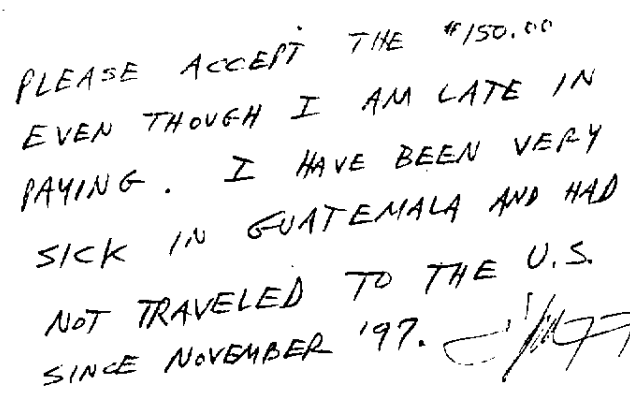 PLEASE ACCEPT THE $150.00
EVEN THOUGH I AM LATE IN
PAYING. I HAVE BEEN VERY
SICK IN GUATEMALA AND HAD
NOT TRAVELED TO THE U.S.
SINCE NOVEMBER '97.